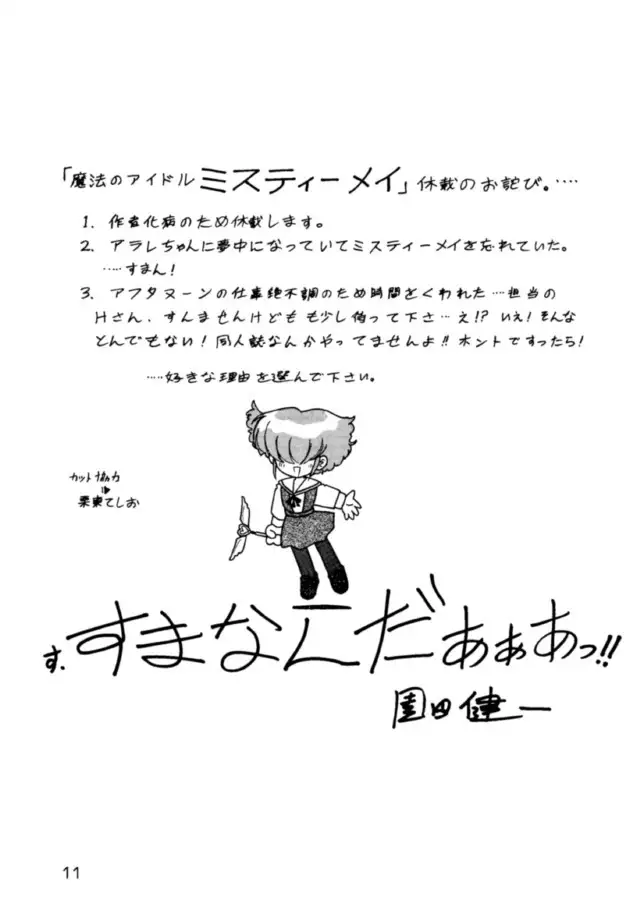 「魔法のアイドル ミスティーメイ」休載のお詫び。‥‥
1. 作者化病のため休載します。
2. アラレちゃんに夢中になっていてミスティーメイを忘れていた。
‥‥すまん!
3. アフタヌーンの仕事絶不調のため時間をくわれた‥‥担当の
Hさん、すんませんけども も少し偽って下さ‥え!?いえ!そんな
とんでもない!同人誌なんかやってませんよ!!ホントですったら!
‥‥好きな理由を選んで下さい。
カット協力
栗東てしお
す.すまなーんだあぁあっ!!
園田健一
11